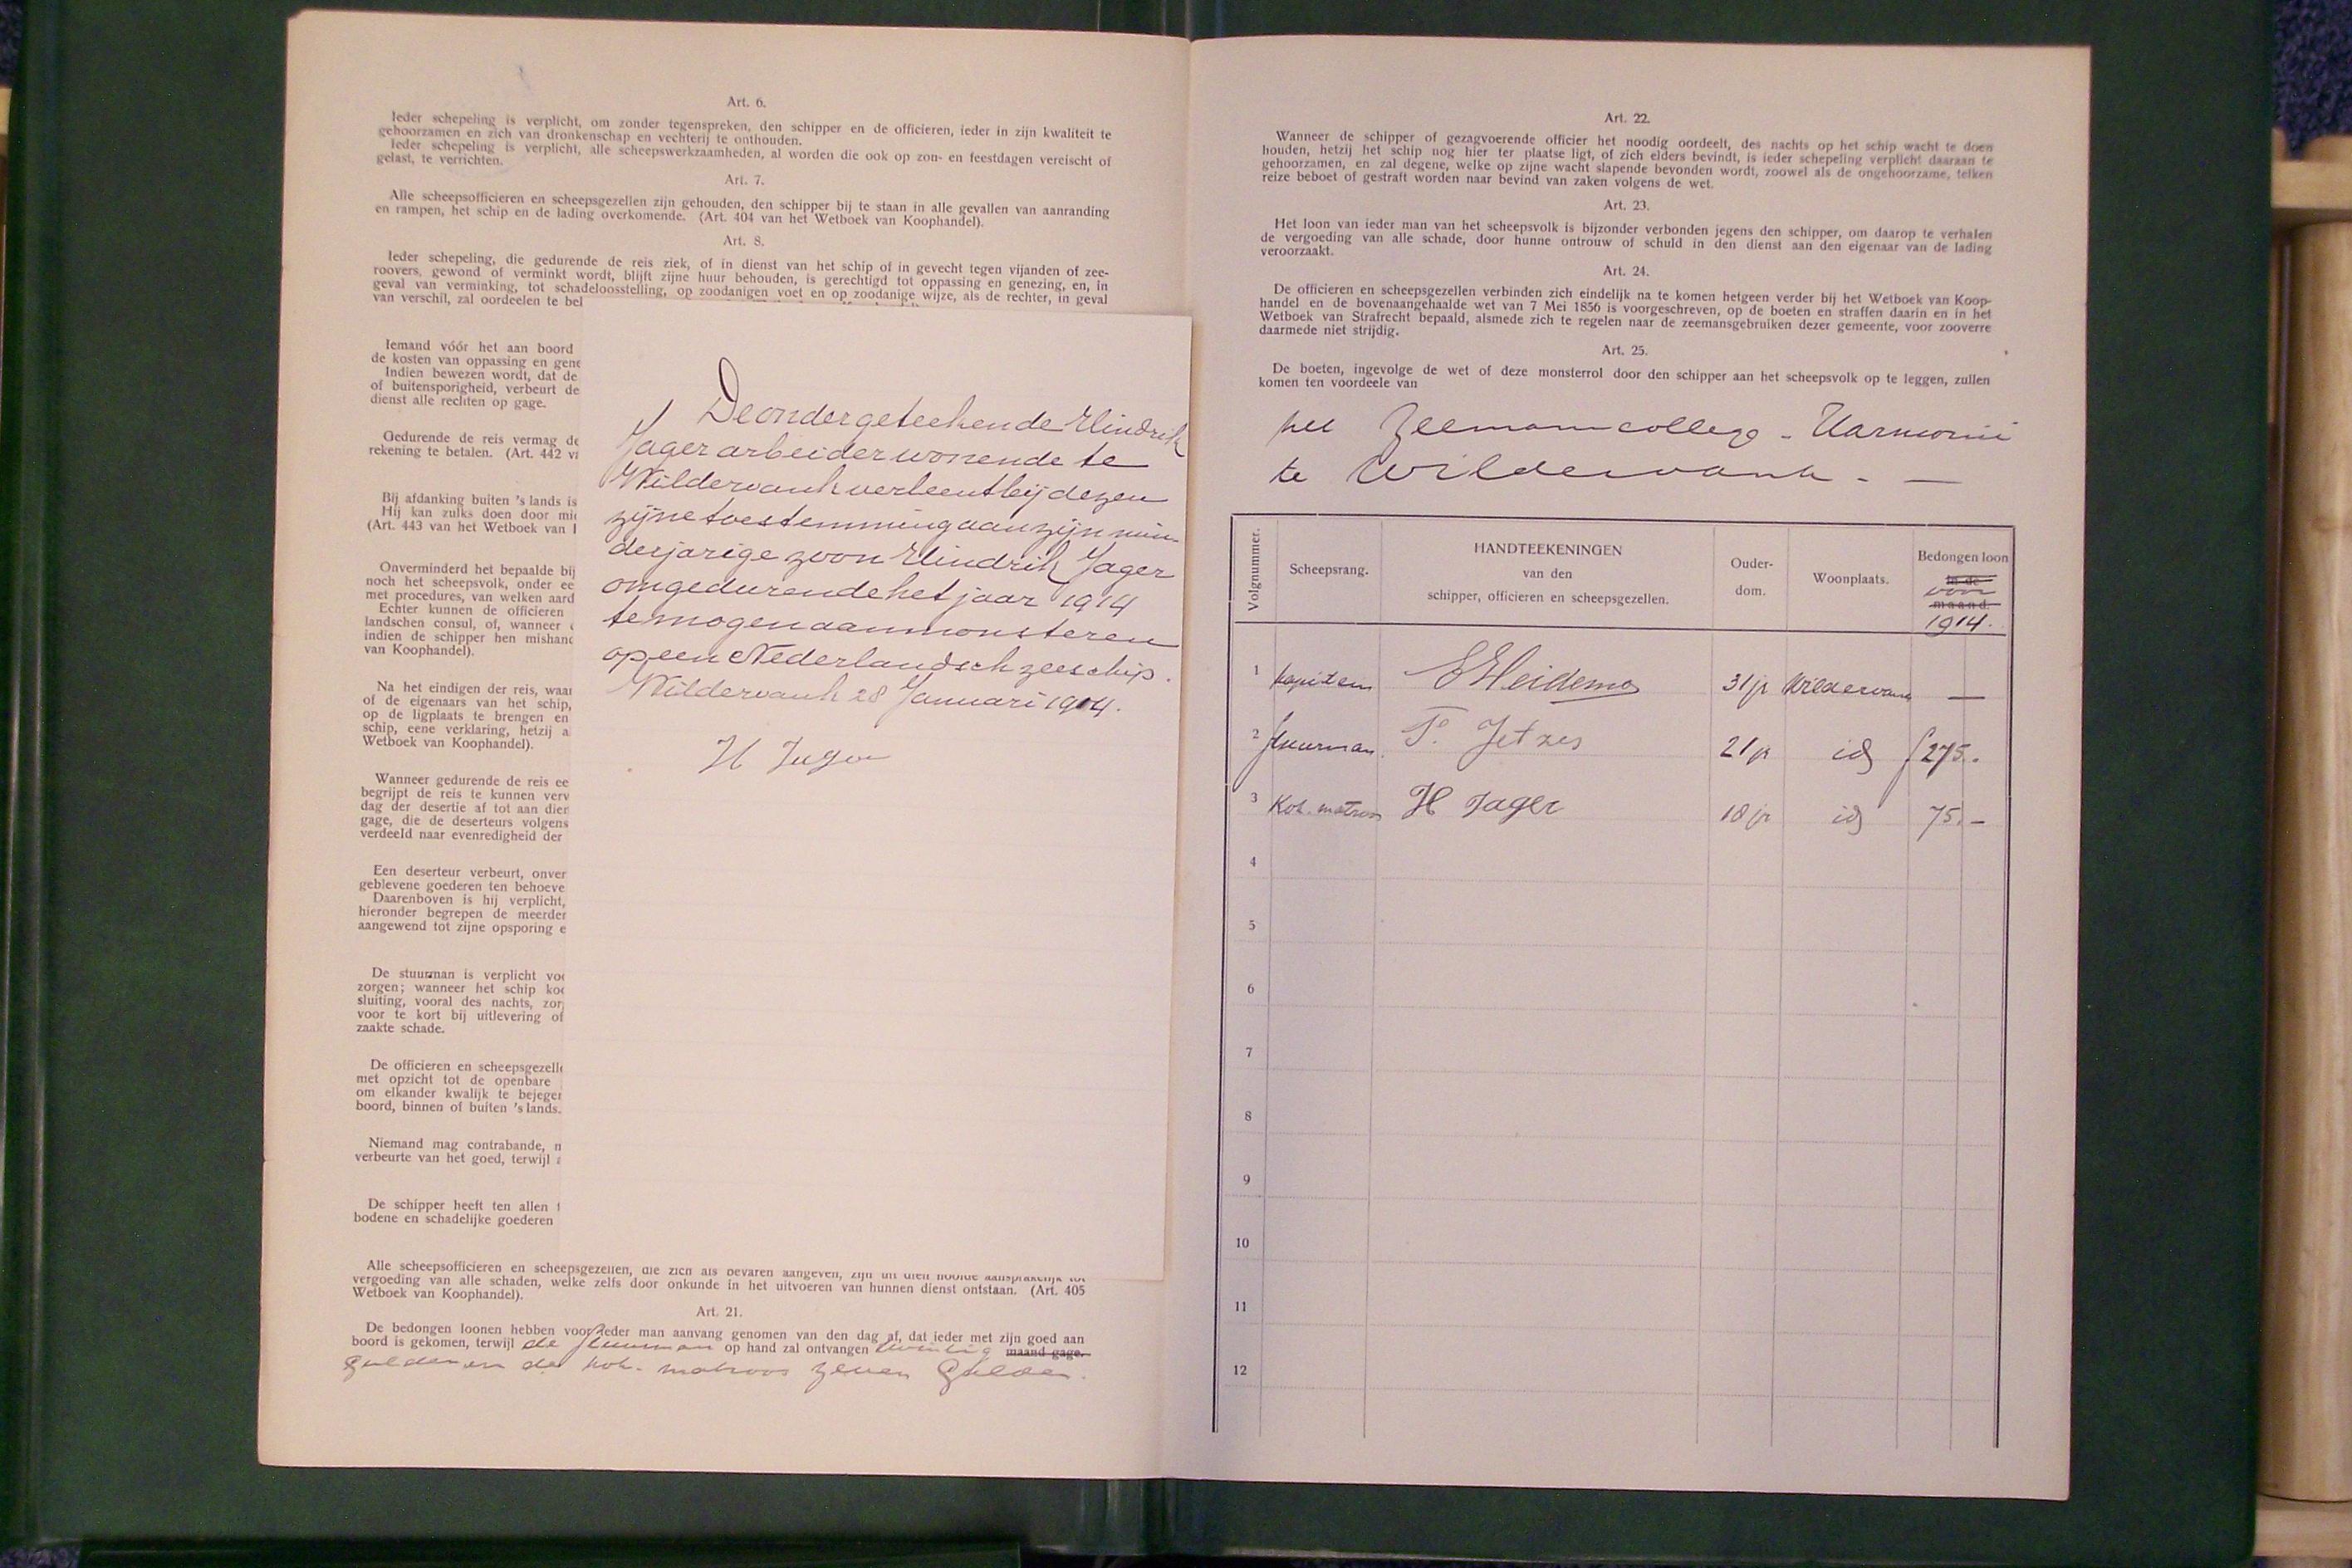 Art. 6.
Ieder schepeling is verplicht, om zonder tegenspreken, den schipper en de officieren, ieder in zijn kwaliteit te
gehoorzamen en zich van dronkenschap en vechterij te onthouden.
Ieder schepeling is verplicht, alle scheepswerkzaamheden, al worden die ook op zon- en feestdagen vereischt of
gelast, te verrichten.
Art. 7.
Alle scheepsofficieren en scheepsgezellen zijn gehouden, den schipper bij te staan in alle gevallen van aanranding
en rampen, het schip en de lading overkomende. (Art. 404 van het Wetboek van Koophandel).
Art. 8.
Ieder schepeling, die gedurende de reis ziek, of in dienst van het schip of in gevecht tegen vijanden of zee-
roovers, gewond of verminkt wordt, blijft zijne huur behouden, is gerechtigd tot oppassing en genezing, en, in
geval van verminking, tot schadeloosstelling, op zoodanigen voet en op zoodanige wijze, als de rechter, in geval
van verschil, zal oordeelen te bel
Iemand vóór het aan boord
de kosten van oppassing en gene
Indien bewezen wordt, dat de
of buitensporigheid, verbeurt de
dienst alle rechten op gage.
Gedurende de reis vermag de
rekening te betalen. (Art. 442 v
Bij afdanking buiten 's lands is
Hij kan zulks doen door mi
(Art. 443 van het Wetboek van
Onverminderd het bepaalde bij
noch het scheepsvolk, onder ee
met procedures, van welken aard
Echter kunnen de officieren
landschen consul, of, wanneer
indien de schipper hen mishand
van Koophandel).
Na het eindigen der reis, waar
of de eigenaars van het schip,
op de ligplaats te brengen en
schip, eene verklaring, hetzij a
Wetboek van Koophandel).
Wanneer gedurende de reis ee
begrijpt de reis te kunnen verv
dag der desertie af tot aan dier
gage, die de deserteurs volgens
verdeeld naar evenredigheid der
Een deserteur verbeurt, onver
geblevene goederen ten behoeve
Daarenboven is hij verplicht,
hieronder begrepen de meerder
aangewend tot zijne opsporing e
De stuurman is verplicht voo
zorgen; wanneer het schip koo
sluiting, vooral des nachts, zor
voor te kort bij uitlevering of
zaakte schade.
De officieren en scheepsgezelle
met opzicht tot de openbare
om elkander kwalijk te bejegen
boord, binnen of buiten 's lands.
Niemand mag contrabande, n
verbeurte van het goed, terwijl
De schipper heeft ten allen t
bodene en schadelijke goederen
Alle scheepsofficieren en scheepsgezellen, die zich als bevaren aangeven, zijn uit dien hoofde aansprakelijk tot
vergoeding van alle schaden, welke zelfs door onkunde in het uitvoeren van hunnen dienst ontstaan. (Art. 405
Wetboek van Koophandel).
Art. 21.
De bedongen loonen hebben voor ieder man aanvang genomen van den dag af, dat ieder met zijn goed aan
boord is gekomen, terwijl de stuurman op hand zal ontvangen twintig maand gage.
gulden en de kok- matroos zeven gulden.
De ondergeteekende Hindrik
Jager arbeider wonende te
Wildervank verleent bij dezen
zijne toestemming aan zijn min-
derjarige zoon Hindrik Jager
om gedurende het jaar 1914
te mogen aanmonsteren
op een Nederlandsch zeeschip.
Wildervank 28 Januari 1914.
H Jager
Art. 22.
Wanneer de schipper of gezagvoerende officier het noodig oordeelt, des nachts op het schip wacht te doen
houden, hetzij het schip nog hier ter plaatse ligt, of zich elders bevindt, is ieder schepeling verplicht daaraan te
gehoorzamen, en zal degene, welke op zijne wacht slapende bevonden wordt, zoowel als de ongehoorzame, telken
reize beboet of gestraft worden naar bevind van zaken volgens de wet.
Art. 23.
Het loon van ieder man van het scheepsvolk is bijzonder verbonden jegens den schipper, om daarop te verhalen
de vergoeding van alle schade, door hunne ontrouw of schuld in den dienst aan den eigenaar van de lading
veroorzaakt.
Art. 24.
De officieren en scheepsgezellen verbinden zich eindelijk na te komen hetgeen verder bij het Wetboek van Koop-
handel en de bovenaangehaalde wet van 7 Mei 1856 is voorgeschreven, op de boeten en straffen daarin en in het
Wetboek van Strafrecht bepaald, alsmede zich te regelen naar de zeemansgebruiken dezer gemeente, voor zooverre
daarmede niet strijdig.
Art. 25.
De boeten, ingevolge de wet of deze monsterrol door den schipper aan het scheepsvolk op te leggen, zullen
komen ten voordeele van
het Zeemancollege - Harmonie
te Wildervank. —
Volgnummer. Scheepsrang. HANDTEEKENINGEN van den schipper, officieren en scheepsgezellen. Ouder-dom. Woonplaats. Bedongen loon in de voor maand. 1914.
1 kapitein Heidema 31 jr Wildervank —
2 stuurman. T. Jetzes 21 jr id f 275.-
3 Kok. matroos H Jager 18 jr id 75.-
4
5
6
7
8
9
10
11
12